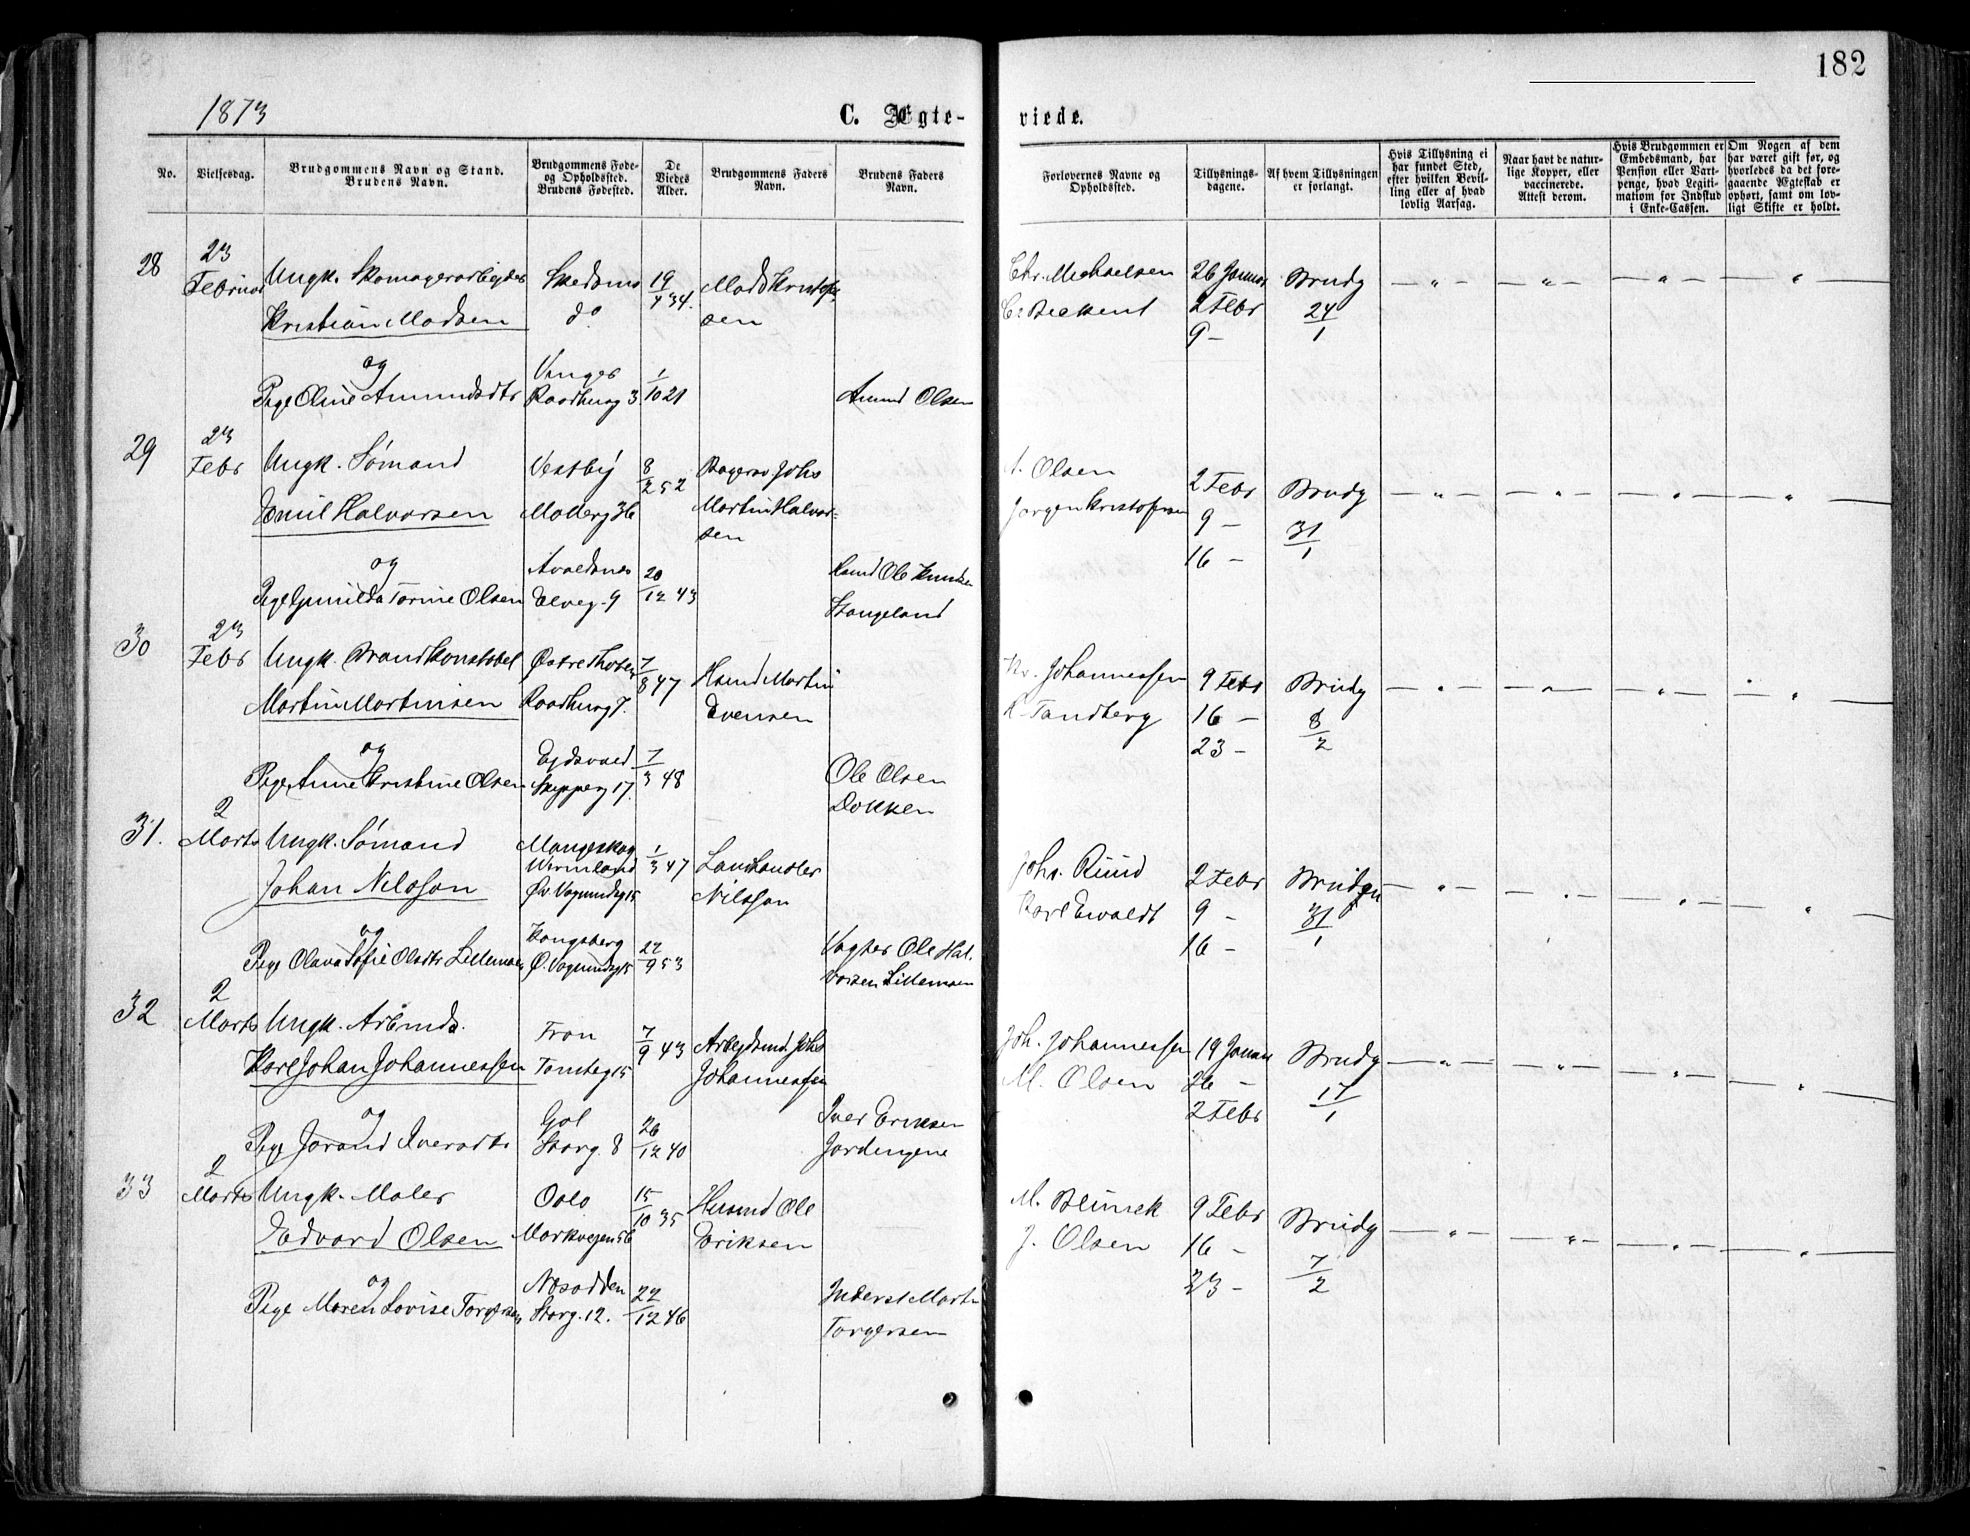 182
1873
C. Ægte-
viede.
No.
Vielsesdag.
Brudgommens Navn og Stand.
Brudens Navn.
Brudgommens Føde-
og Opholdssted.
Brudens Fødested.
De
Viedes
Alder.
Brudgommens Faders
Navn.
Brudens Faders
Navn.
Forlovernes Navne og
Opholdssted.
Tillysnings-
dagene.
Af hvem Tillysningen
er forlangt.
Hvis Tillysning ei
har fundet Sted,
efter hvilken Bevil-
ling eller af hvad
lovlig Aarsag.
Naar havt de natur-
lige Kopper, eller
vaccinerede.
Attest derom.
Hvis Brudgommen er
Embedsmand, har
Pension eller Vart-
penge, hvad Legiti-
mation for Indskud
i Enke-Cassen.
Om Nogen af dem
har været gift før, og
hvorledes da det fore-
gaaende Ægteskab er
ophørt, samt om lov-
ligt Skifte er holdt.
28
23
Februar
Ungk. Skomagerarbejder
Kristian Madsen
og
Pige Oline Amundsdtr
Skedsmo
do
Vinger
Raadhusg 3
19/7 34.
1/10 21
Mads Kristofer
sen
Amund Olsen
Chr. Michaelsen
26 Januar
2 Febr
9 –
Brudg
24/1
29
23
Febr
Ungk. Sømand
Emil Halvorsen
og
Pige Gunilda Torine Olsen
Vestby
Møllerg 36
Avaldsnes
Elveg. 9
8/2 52
20/12 43
Johs
Martin Halvor-
sen
Husmd Ole Knudsen
Stangeland
Olsen
Jørgen Kristofersen
2 Febr
9 –
16 –
Brudg
31/1
30
23
Febr
Ungk. Brandkonstabel
Martin Martinsen
og
Pige Anne Kristine Olsen
Østre Thoten
Raadhusg 7.
Ejdsvold
Skipperg 17.
7/8 47
7/3 48
Husmd Martin
Evensen
Ole Olsen
Dokken
Johannessen
Tandberg
9 Febr
16 –
23 –
Brudg
8/2
31.
2
Marts
Ungk. Sømand
Johan Nilsson
og
Pige Olava Sofie Olsdtr Lillemoen
Mangeskog
Wermland
Øv Vognmdsg 15
Kongsberg
Ø. Vognmdsg 15
1/3 47
22/9 53
Landhandler
Nilsson
Vogter Ole Hal-
vorsen Lillemoen
Johs. Ruud
Karl Ewaldt
2 Febr
9 –
16 –
Brudgm
31/1
32
2
Marts
Ungk. Arbmd.
Karl Johan Johannessen
og
Pige Jorand Iversdtr
Fron
Tomteg 15
Gol
Storg. 8
7/9 43
26/12 40
Arbejdsmd. Johs
Johannessen
Iver Eriksen
Jordengene
Joh. Johannessen
M. Olsen
19 Januar
26 –
2 Febr
Brudg
17/1
33
2
Marts
Ungk. Maler
Edvard Olsen
og
Pige Maren Lovise Torgersen
Oslo
Markvejen 56
Næsodden
Storg. 12.
15/10 35
22/12 46
Husmd Ole
Eriksen
Inderst Martin
Torgersen
J. Olsen
9 Febr
16 –
23 –
Brudg
7/2